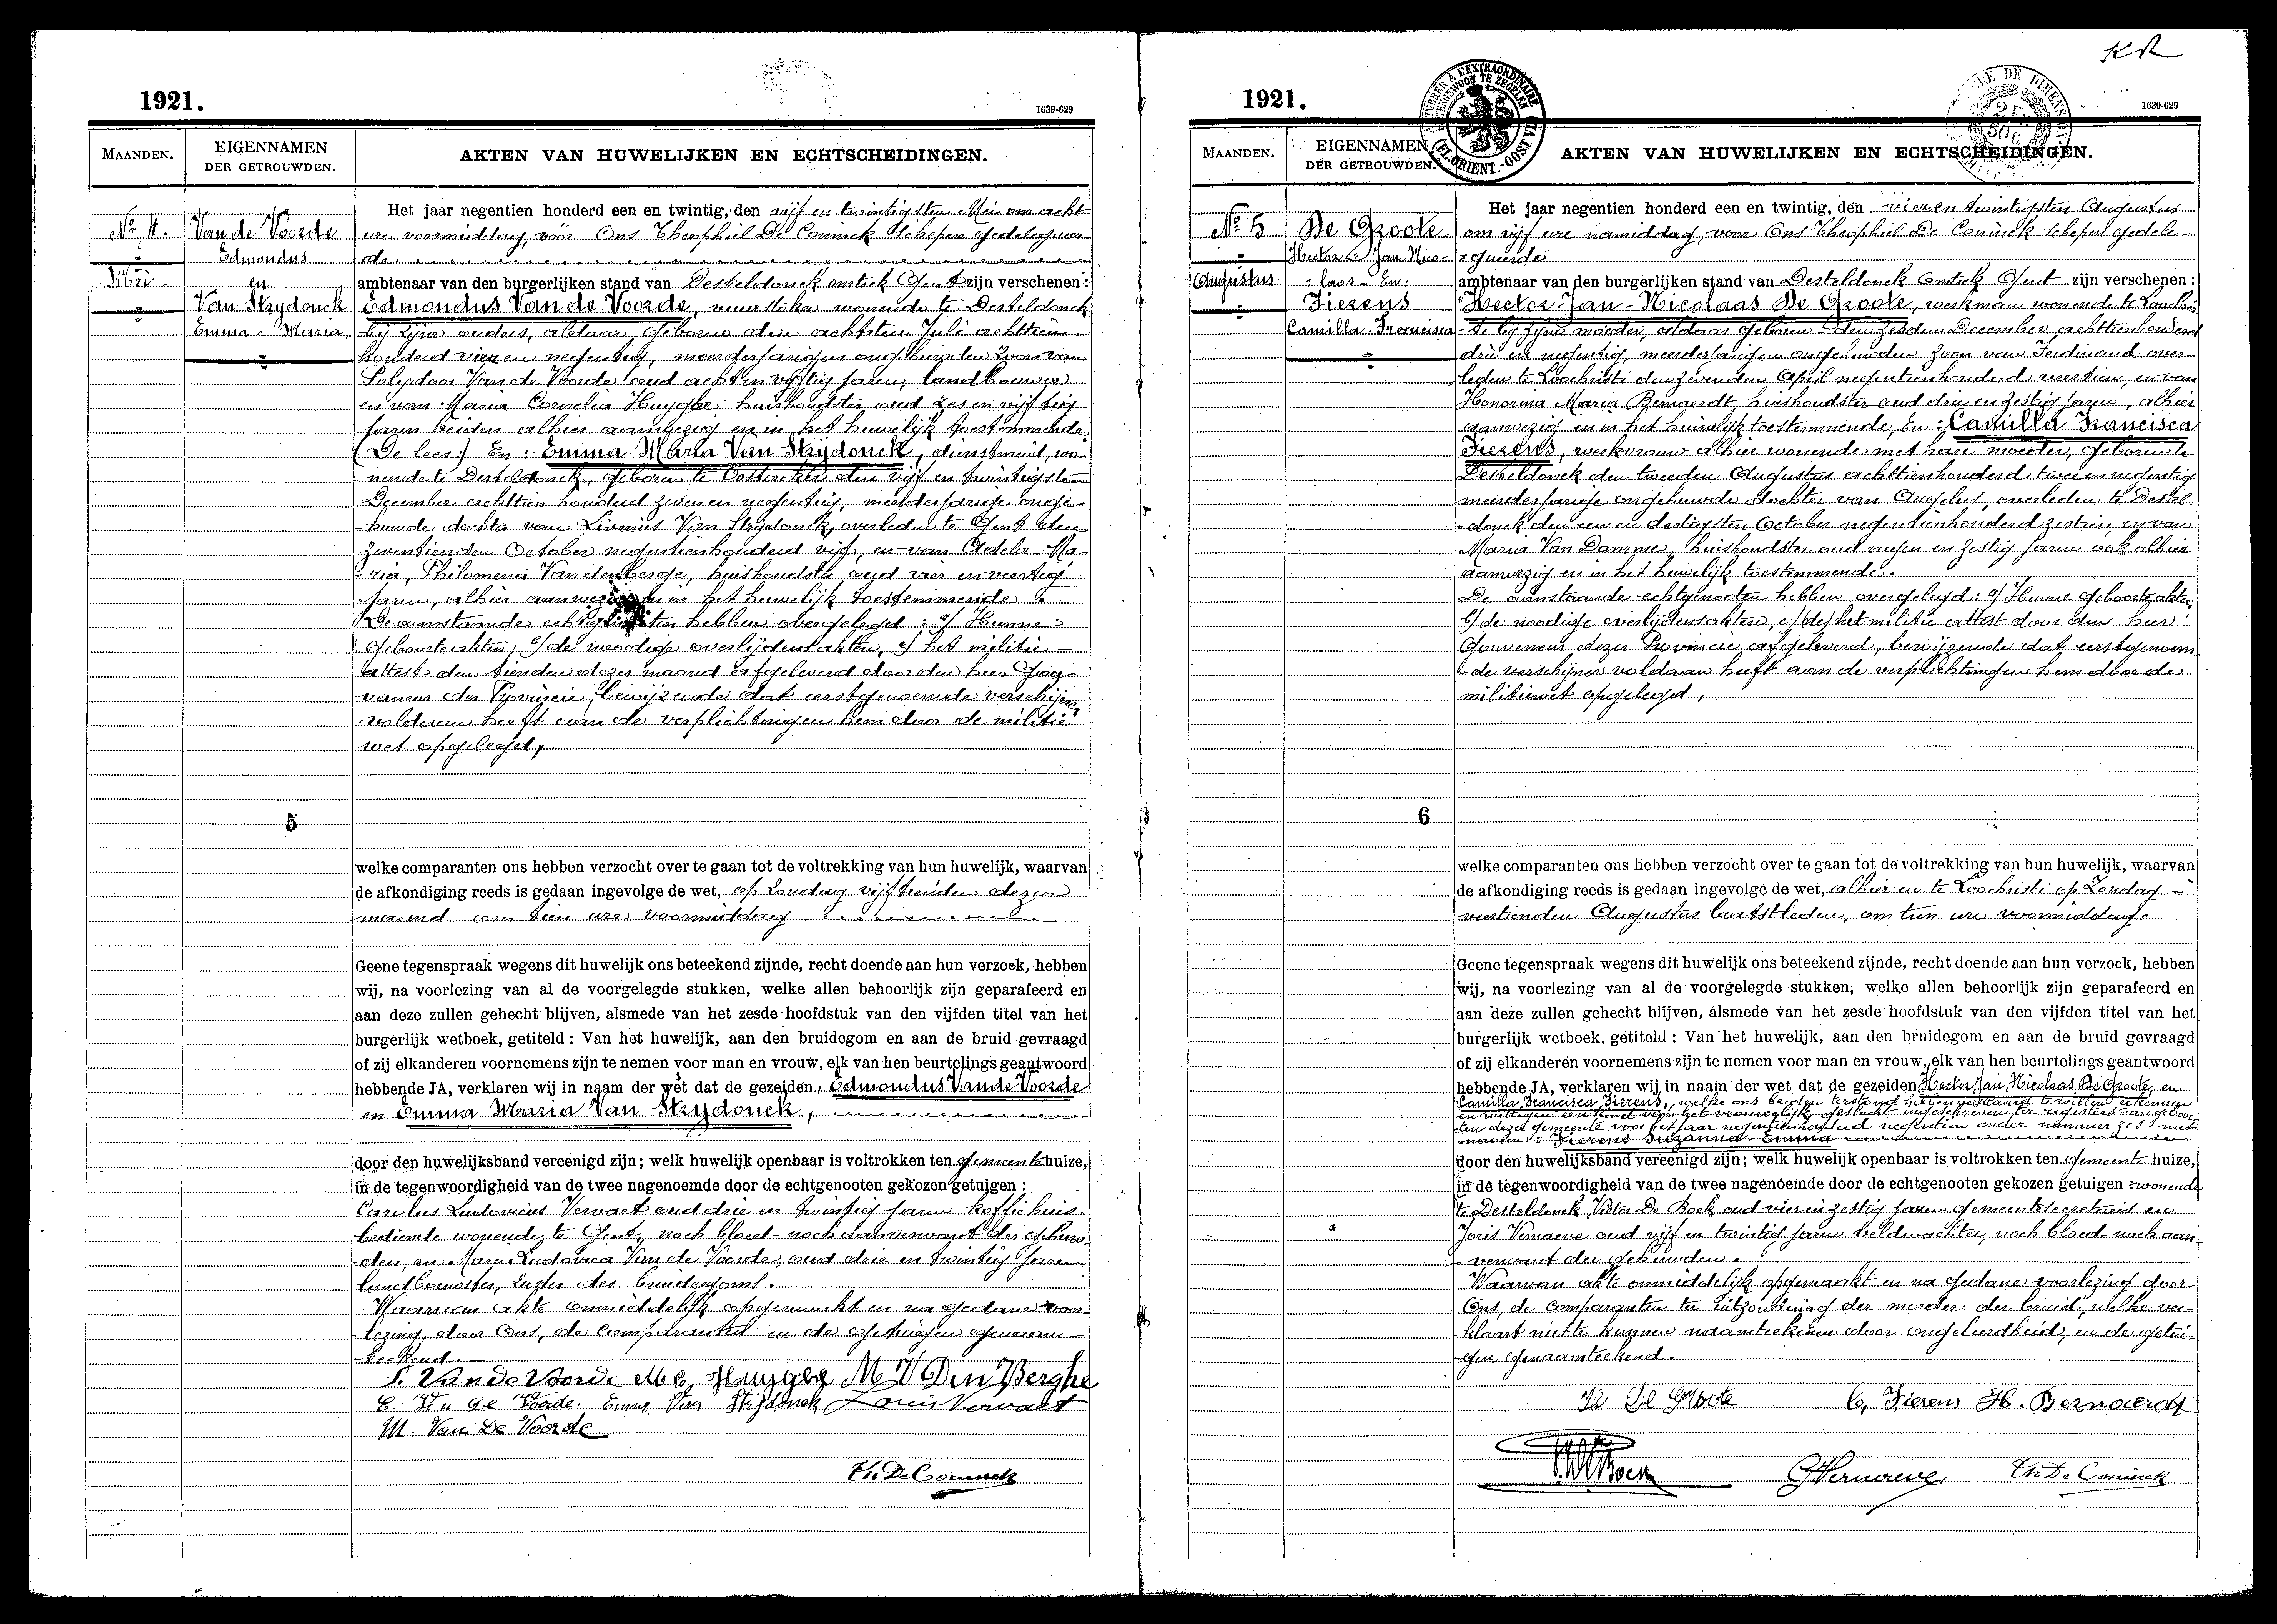 1921.
1639-629
MAANDEN.
EIGENNAMEN
DER GETROUWDEN.
AKTEN VAN HUWELIJKEN EN ECHTSCHEIDINGEN.
No 4.
Mei
Van de Voorde
Edmondus
en
Van Strydonck
Emma-Maria
Het jaar negentien honderd een en twintig, den vijf en twintigsten Mei om acht
ure voormiddag, vóór Ons Theophiel De Coninck Schepen gedelegueer-
de
ambtenaar van den burgerlijken stand van Desteldonck omstek Gent zijn verschenen:
Edmondus Van de Voorde, wonende te Desteldonck
bij zijne ouders, aldaar geboren den achtsten Juli achttien
honderd vier en negentig, meerderjarigen ongehuwden zoon van
Polydoor Van de Voorde oud acht en vijftig jaren, landbouwer
en van Maria Cornelia Huyghe huishoudster oud zes en vijftig
jaren beiden alhier aanwezig en in het huwelijk toestemmende.
(De lees:) En: Emma Maria Van Strydonck, dienstmeid, wo-
nende te Desteldonck, geboren te Oostacker den vijf en twintigsten
December achttien honderd zeven en negentig, meerderjarige onge-
huwde dochter van Livinus Van Strydonck, overleden te Gent den
zeventienden October negentienhonderd vijf, en van Adele-Ma-
ria, Philomena Vandenberge, huishoudster oud vier en veertig
jaren, alhier aanwezig en in het huwelijk toestemmende.
De aanstaande echtgenooten hebben overgelegd: a/ Hunne
geboorteakten, b/ de noodige overlijdensakten, c/ het militie-
attest den tienden dezer maand afgeleverd door den heer Gou-
verneur der Provincie, bewijzende dat eerstgenoemde verschijner
voldaan heeft aan de verplichtingen hem door de militie
wet opgelegd,
5
welke comparanten ons hebben verzocht over te gaan tot de voltrekking van hun huwelijk, waarvan
de afkondiging reeds is gedaan ingevolge de wet, op Zondag vijftienden dezer
maand om tien ure voormiddag
Geene tegenspraak wegens dit huwelijk ons beteekend zijnde, recht doende aan hun verzoek, hebben
wij, na voorlezing van al de voorgelegde stukken, welke allen behoorlijk zijn geparafeerd en
aan deze zullen gehecht blijven, alsmede van het zesde hoofdstuk van den vijfden titel van het
burgerlijk wetboek, getiteld : Van het huwelijk, aan den bruidegom en aan de bruid gevraagd
of zij elkanderen voornemens zijn te nemen voor man en vrouw, elk van hen beurtelings geantwoord
hebbende JA, verklaren wij in naam der wet dat de gezeiden, Edmondus Van de Voorde
en Emma Maria Van Strydonck,
door den huwelijksband vereenigd zijn; welk huwelijk openbaar is voltrokken ten gemeente huize,
in de tegenwoordigheid van de twee nagenoemde door de echtgenooten gekozen getuigen :
Carolus Ludovicus Vervaet oud drie en twintig jaren koffiehuis-
bediende wonende te Gent, noch bloed- noch aanverwant der gehuw-
den, en Maria Ludovica Van de Voorde, oud drie en twintig jaren
landbouwster, zuster des bruidegoms.
Waarvan akte onmiddelijk opgemaakt en na gedane voor-
lezing, door Ons, de comparanten en de getuigen genaam-
teekend.
P. Van de Voorde M C Huyghe M V Den Berghe
E. Van de Voorde. Emma Van Strijdonck Louis Vervaet
M. Van De Voorde
Th. De Coninck
KR
1921.
1639-629
MAANDEN.
EIGENNAMEN
DER GETROUWDEN.
AKTEN VAN HUWELIJKEN EN ECHTSCHEIDINGEN.
No 5
Augustus
De Groote
Hector-Jan-Nico-
laas-En:
Fierens
Camilla-Francisca
Het jaar negentien honderd een en twintig, den vier en twintigsten Augustus
om vijf ure namiddag, voor Ons Theophiel De Coninck Schepen gedele-
gueerde
ambtenaar van den burgerlijken stand van Desteldonck omstek Gent zijn verschenen:
Hector-Jan-Nicolaas De Groote, werkman wonende te Loochris-
ti bij zijne moeder, aldaar geboren den zesden December achttienhonderd
drie en negentig, meerderjarigen ongehuwden zoon van Ferdinand over-
leden te Loochristi den zevenden April negentienhonderd veertien, en van
Honorina Maria Bernaerdt, huishoudster oud drie en zestig jaren, alhier
aanwezig en in het huwelijk toestemmende, En: Camilla Francisca
Fierens, werkvrouw alhier wonende met hare moeder, geboren te
Desteldonck den tweeden Augustus achttienhonderd twee en negentig
meerderjarige ongehuwde dochter van Angelus, overleden te Destel-
donck den een en dertigsten October negentienhonderd zestien, en van
Maria Van Damme, huishoudster oud negen en zestig jaren ook alhier
aanwezig en in het huwelijk toestemmende.
De aanstaande echtgenooten hebben overgelegd: a/ Hunne geboorteakten,
b/ de noodige overlijdensakten, c/ (de) het militie attest door den heer
Gouverneur dezer Provincie afgeleverd, bewijzende dat eerstgenoem-
de verschijner voldaan heeft aan de verplichtingen hem door de
militiewet opgelegd,
6
welke comparanten ons hebben verzocht over te gaan tot de voltrekking van hun huwelijk, waarvan
de afkondiging reeds is gedaan ingevolge de wet, alhier en te Loochristi op Zondag
veertienden Augustus laatstleden, om tien ure voormiddag.
Geene tegenspraak wegens dit huwelijk ons beteekend zijnde, recht doende aan hun verzoek, hebben
wij, na voorlezing van al de voorgelegde stukken, welke allen behoorlijk zijn geparafeerd en
aan deze zullen gehecht blijven, alsmede van het zesde hoofdstuk van den vijfden titel van het
burgerlijk wetboek, getiteld : Van het huwelijk, aan den bruidegom en aan de bruid gevraagd
of zij elkanderen voornemens zijn te nemen voor man en vrouw, elk van hen beurtelings geantwoord
hebbende JA, verklaren wij in naam der wet dat de gezeiden Hector Jan Nicolaas De Groote, en
Camilla Francisca Fierens, welke ons beiden terstond hebben verklaard te willen erkennen
en wettigen een kind van het vrouwelijk geslacht ingeschreven ter registers van geboor-
ten dezer gemeente voor het jaar negentienhonderd negentien onder nummer zes met
namen: Fierens Suzanna-Emma
door den huwelijksband vereenigd zijn; welk huwelijk openbaar is voltrokken ten gemeente huize,
in de tegenwoordigheid van de twee nagenoemde door de echtgenooten gekozen getuigen : wonende
te Desteldonck, Victor De Bock oud vier en zestig jaren gemeentesecretaris en
Joris Vernaeve oud vijf en twintig jaren veldwachter, noch bloed- noch aan-
verwant der gehuwden.
Waarvan akte onmiddelijk opgemaakt en na gedane voorlezing door
Ons, de comparanten ter uitzondering der moeder der bruid, welke ver-
klaart niet te kunnen naamteekenen door ongeleerdheid, en de getui-
gen genaamteekend.
De Groote C, Fierens H. Bernaerdt
GVernaeve Th De Coninck